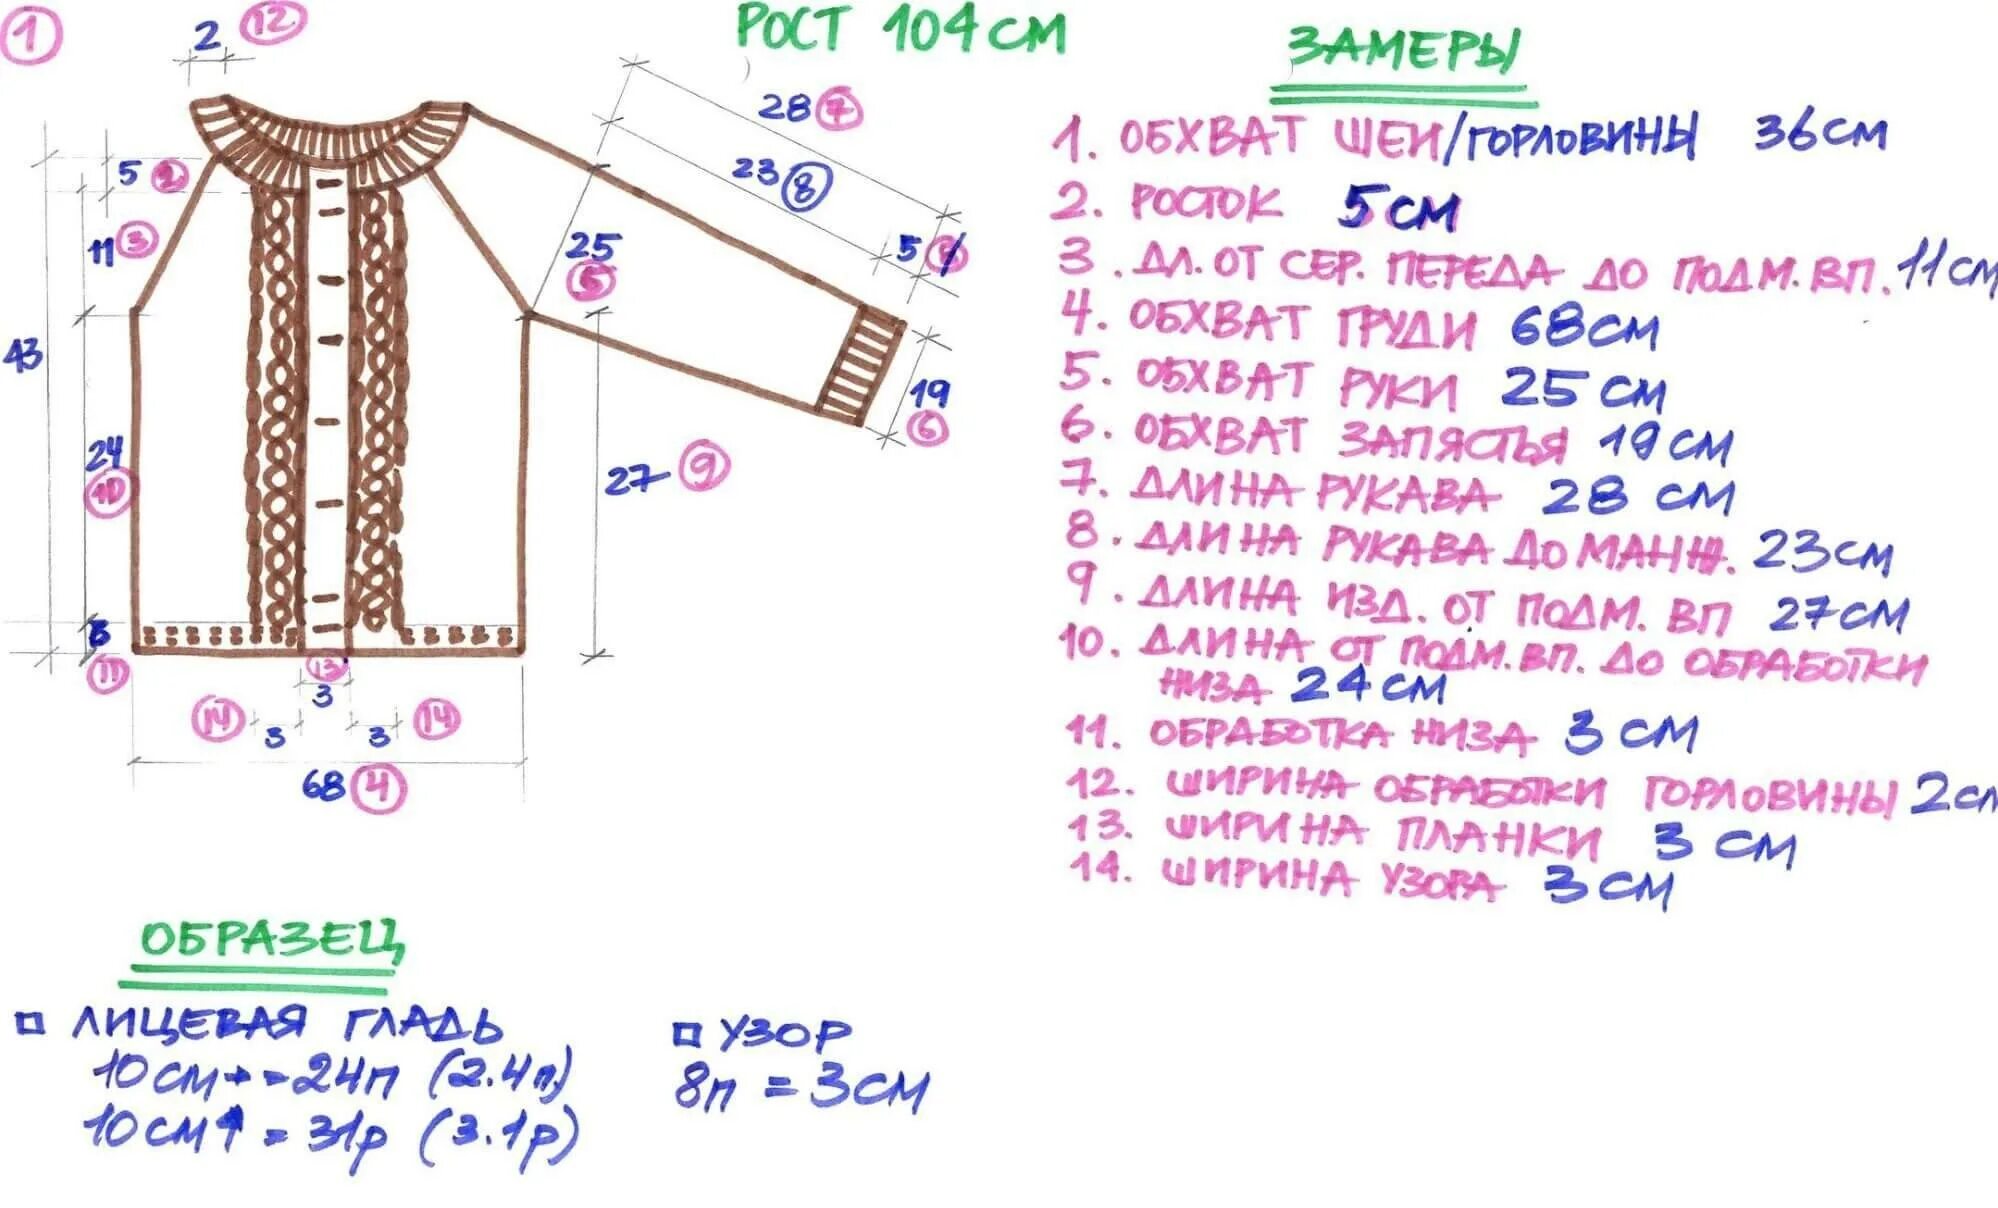 1
2 12
РОСТ 104 СМ
ЗАМЕРЫ
28 7
23 8
5
5 2
11 3
25 5
43
19 6
24 10
27 9
3
11
13
3
14 14
3 3
68 4
1. ОБХВАТ ШЕИ/ГОРЛОВИНЫ 36 СМ
2. РОСТОК 5 СМ
3. ДЛ. ОТ СЕР. ПЕРЕДА ДО ПОДМ. ВП. 11 СМ
4. ОБХВАТ ГРУДИ 68 СМ
5. ОБХВАТ РУКИ 25 СМ
6. ОБХВАТ ЗАПЯСТЬЯ 19 СМ
7. ДЛИНА РУКАВА 28 СМ
8. ДЛИНА РУКАВА ДО МАНЖ. 23 СМ
9. ДЛИНА ИЗД. ОТ ПОДМ. ВП 27 СМ
10. ДЛИНА ОТ ПОДМ. ВП. ДО ОБРАБОТКИ
НИЗА 24 СМ
11. ОБРАБОТКА НИЗА 3 СМ
12. ШИРИНА ОБРАБОТКИ ГОРЛОВИНЫ 2 см
13. ШИРИНА ПЛАНКИ 3 СМ
14. ШИРИНА УЗОРА 3 СМ
ОБРАЗЕЦ
ЛИЦЕВАЯ ГЛАДЬ
10 СМ → = 24п (2.4п)
10 СМ ↑ = 31р (3.1р)
УЗОР
8п = 3 СМ